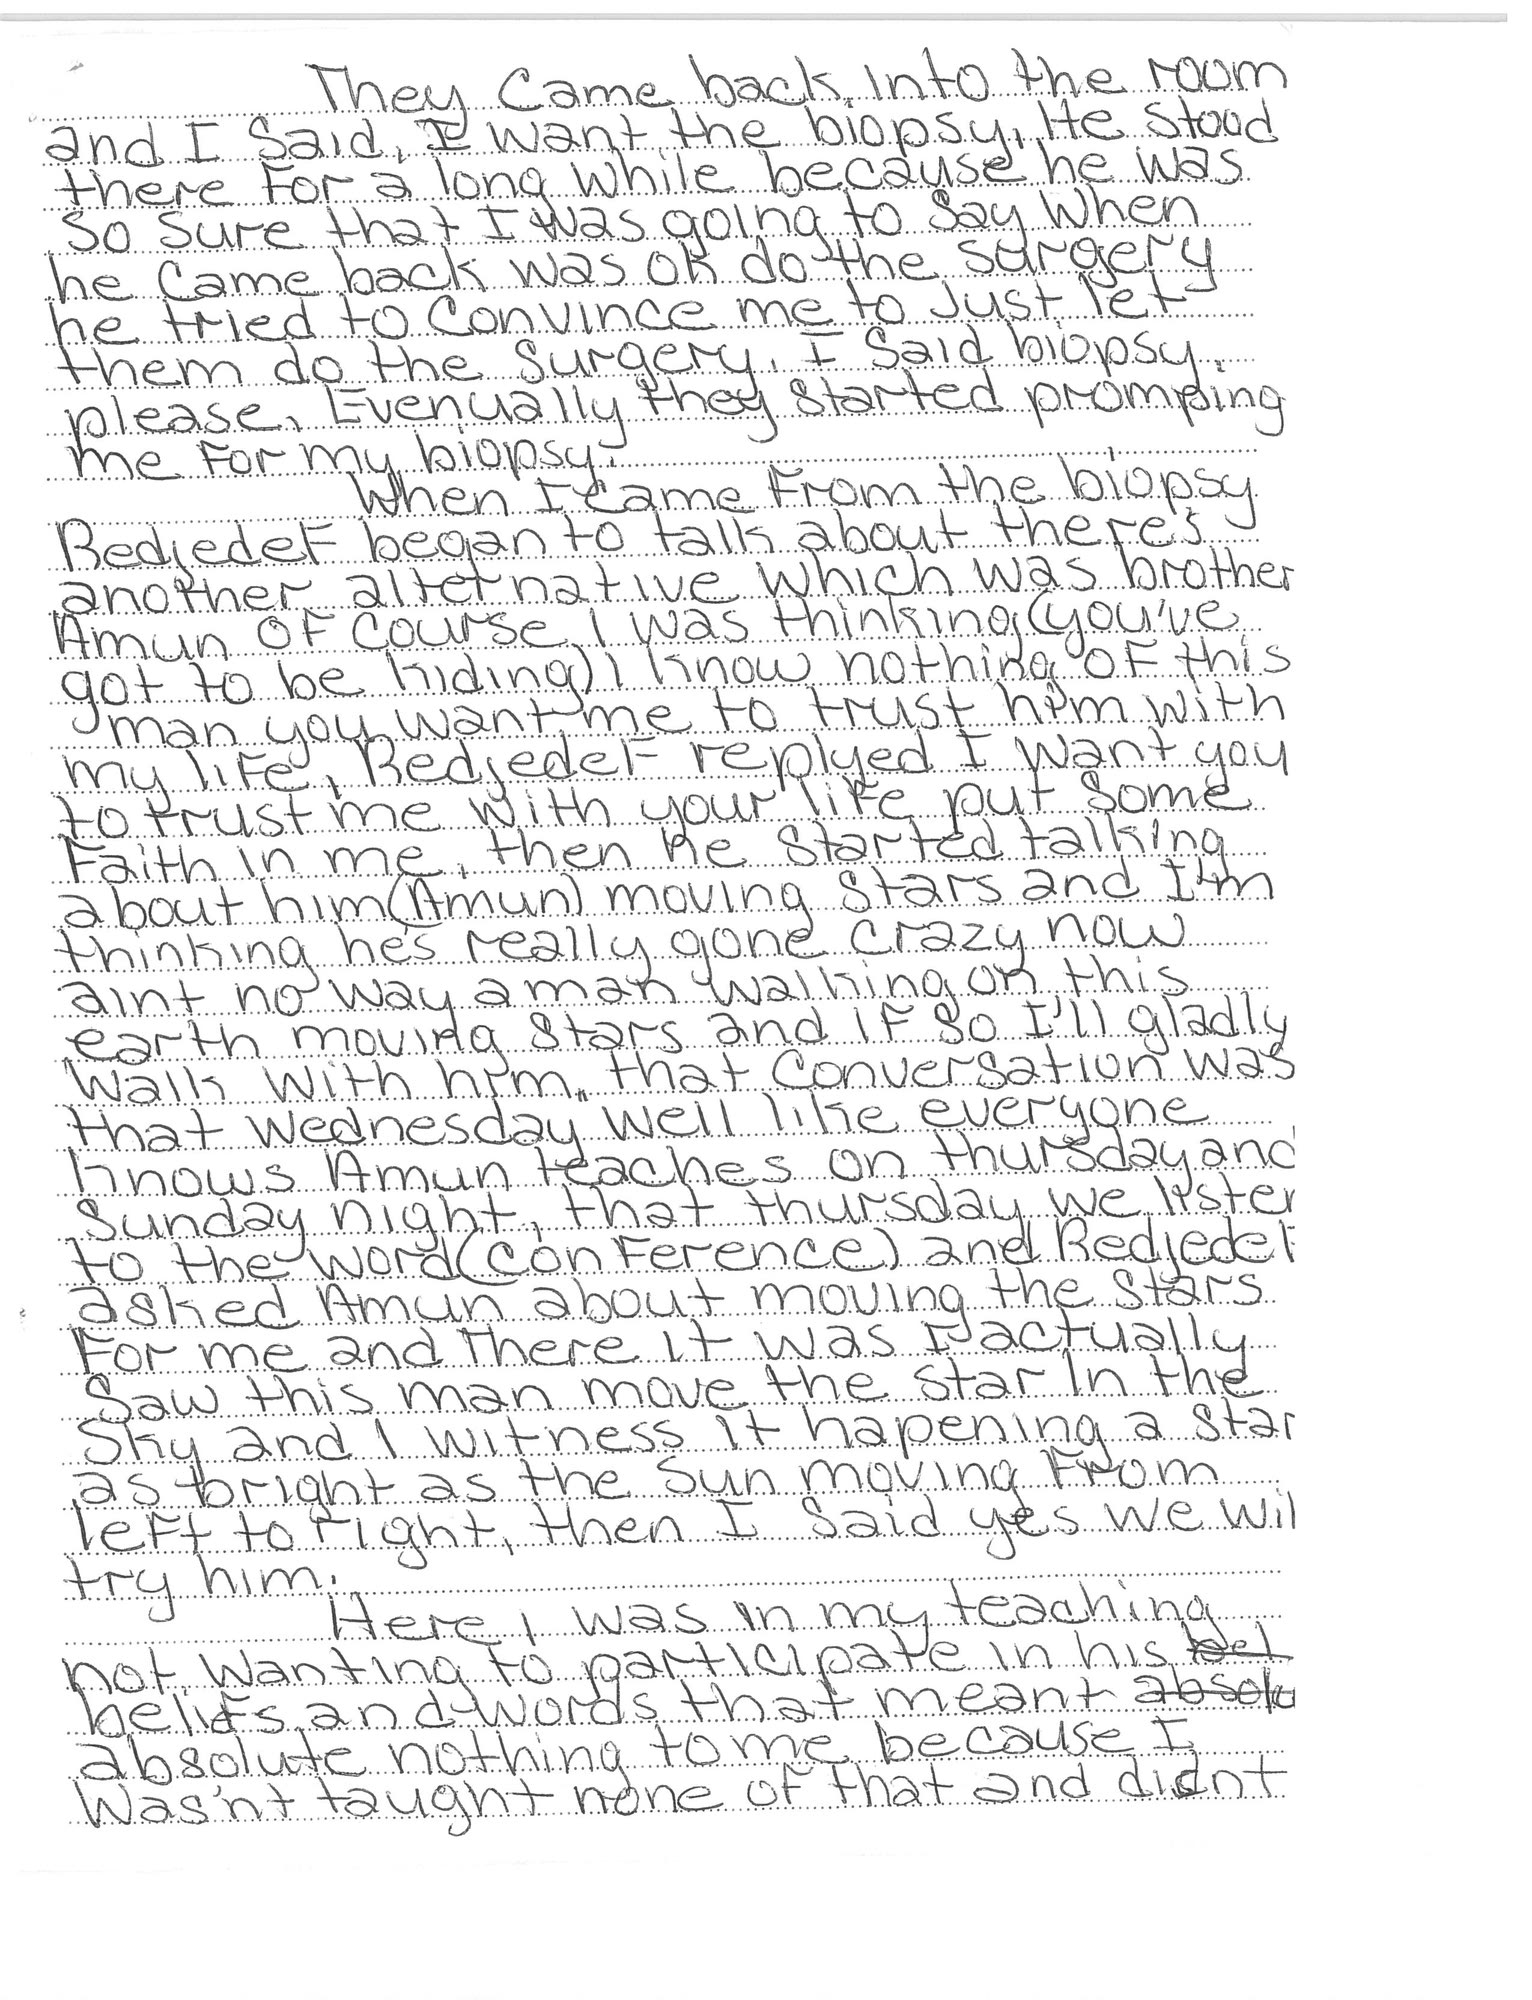 They Came back into the room
and I Said, I want the biopsy, He Stood
there For a long while because he was
So Sure that I was going to Say When
he Came back was ok do the surgery
he tried to Convince me to Just let
them do the Surgery. I Said biopsy,
please, Evenually they started promping
me For my biopsy.
When I came From the biopsy
Redjedef began to talk about there's
another alternative which was brother
Amun of course I was thinking (you've
got to be kiding) I know nothing of this
man you want me to trust him with
my life, Redjedef replyed I want you
to trust me with your life put Some
Faith in me, then he started talking
about him(Amun) moving Stars and I'm
thinking he's really gone crazy now
aint no way a man walking on this
earth moving Stars and if so I'll gladly
Walk With him, that Conversation was
that Wednesday well like everyone
knows Amun teaches on thursday and
Sunday night, that thursday we listen
to the word(conference) and Redjedef
asked Amun about moving the stars
For me and There it was I actually
Saw this man move the star In the
Sky and I witness it hapening a star
as bright as the Sun moving From
left to right, then I Said yes we wil
try him.
Here I was in my teaching
not wanting to participate in his bel
beliefs and words that meant absolu
absolute nothing to me because I
Was'nt taught none of that and didnt